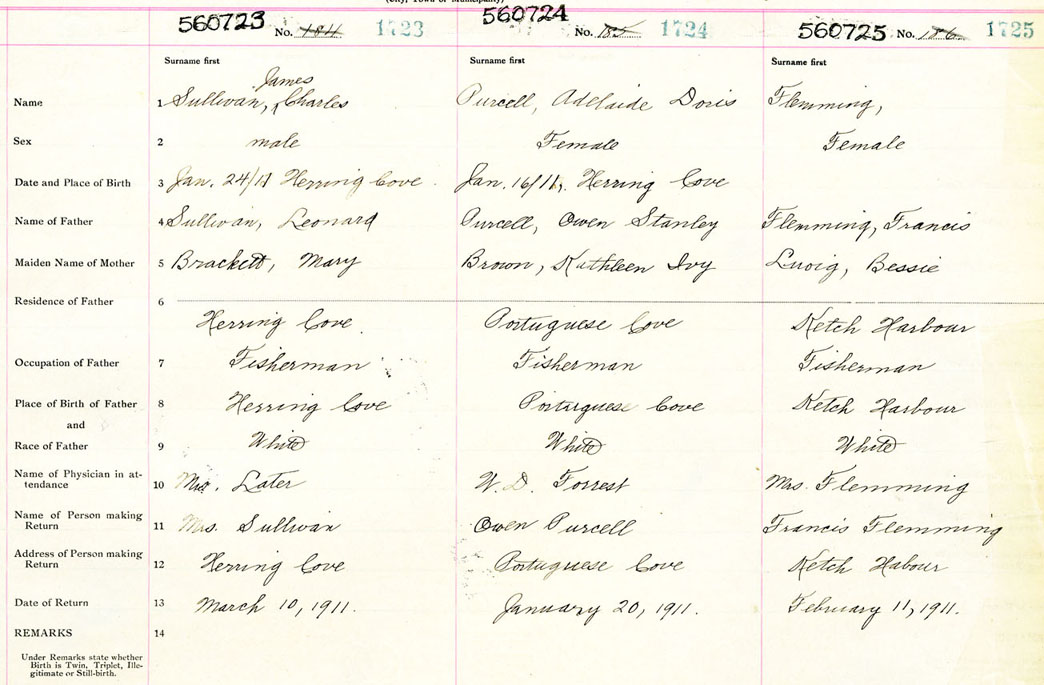 (City, Town or Municipality)
560723 No. 184 1723 560724 No. 185 1724 560725 No. 186 1725
Surname first Surname first Surname first
James
Name 1 Sullivan, Charles Purcell, Adelaide Doris Flemming,
Sex 2 male Female Female
Date and Place of Birth 3 Jan. 24/11 Herring Cove. Jan. 16/11, Herring Cove
Name of Father 4 Sullivan, Leonard Purcell, Owen Stanley Flemming, Francis
Maiden Name of Mother 5 Brackett, Mary Brown, Kathleen Ivy Bessie
Residence of Father 6
Herring Cove. Portuguese Cove Ketch Harbour
Occupation of Father 7 Fisherman Fisherman Fisherman
Place of Birth of Father 8 Herring Cove Portuguese Cove Ketch Harbour
and
Race of Father 9 White White White
Name of Physician in at-
tendance 10 Mrs. Later W. D. Forrest Mrs. Flemming
Name of Person making
Return 11 Mrs. Sullivan Owen Purcell Francis Flemming
Address of Person making
Return 12 Herring Cove Portuguese Cove Ketch Habour
Date of Return 13 March 10, 1911. January 20, 1911. February 11, 1911.
REMARKS 14
Under Remarks state whether
Birth is Twin, Triplet, Ille-
gitimate or Still-birth.